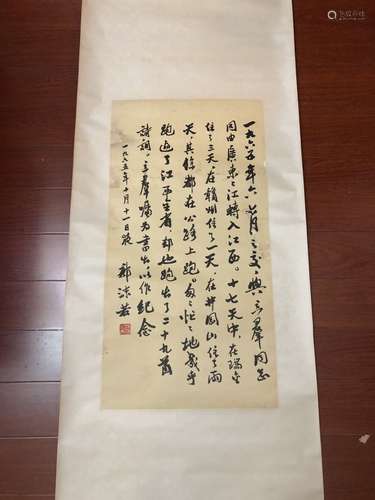 一九六五年六七月之交,與立羣同志
由廣東 江轉入江西。十七天中,在瑞金
住了三天,在贛州住了一天,在井岡山住了兩
天,其餘都在公路上跑。匆〻忙〻地幾乎
跑遍了江西全省,却也跑出了二十九首
詩詞。立羣囑为書出以作紀念
一九六五年十月十一日夜
郭沫若